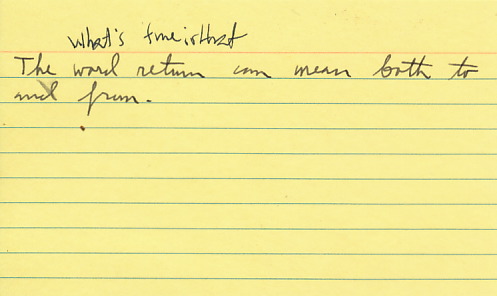 What's true is that
The word return can mean both to
and from.